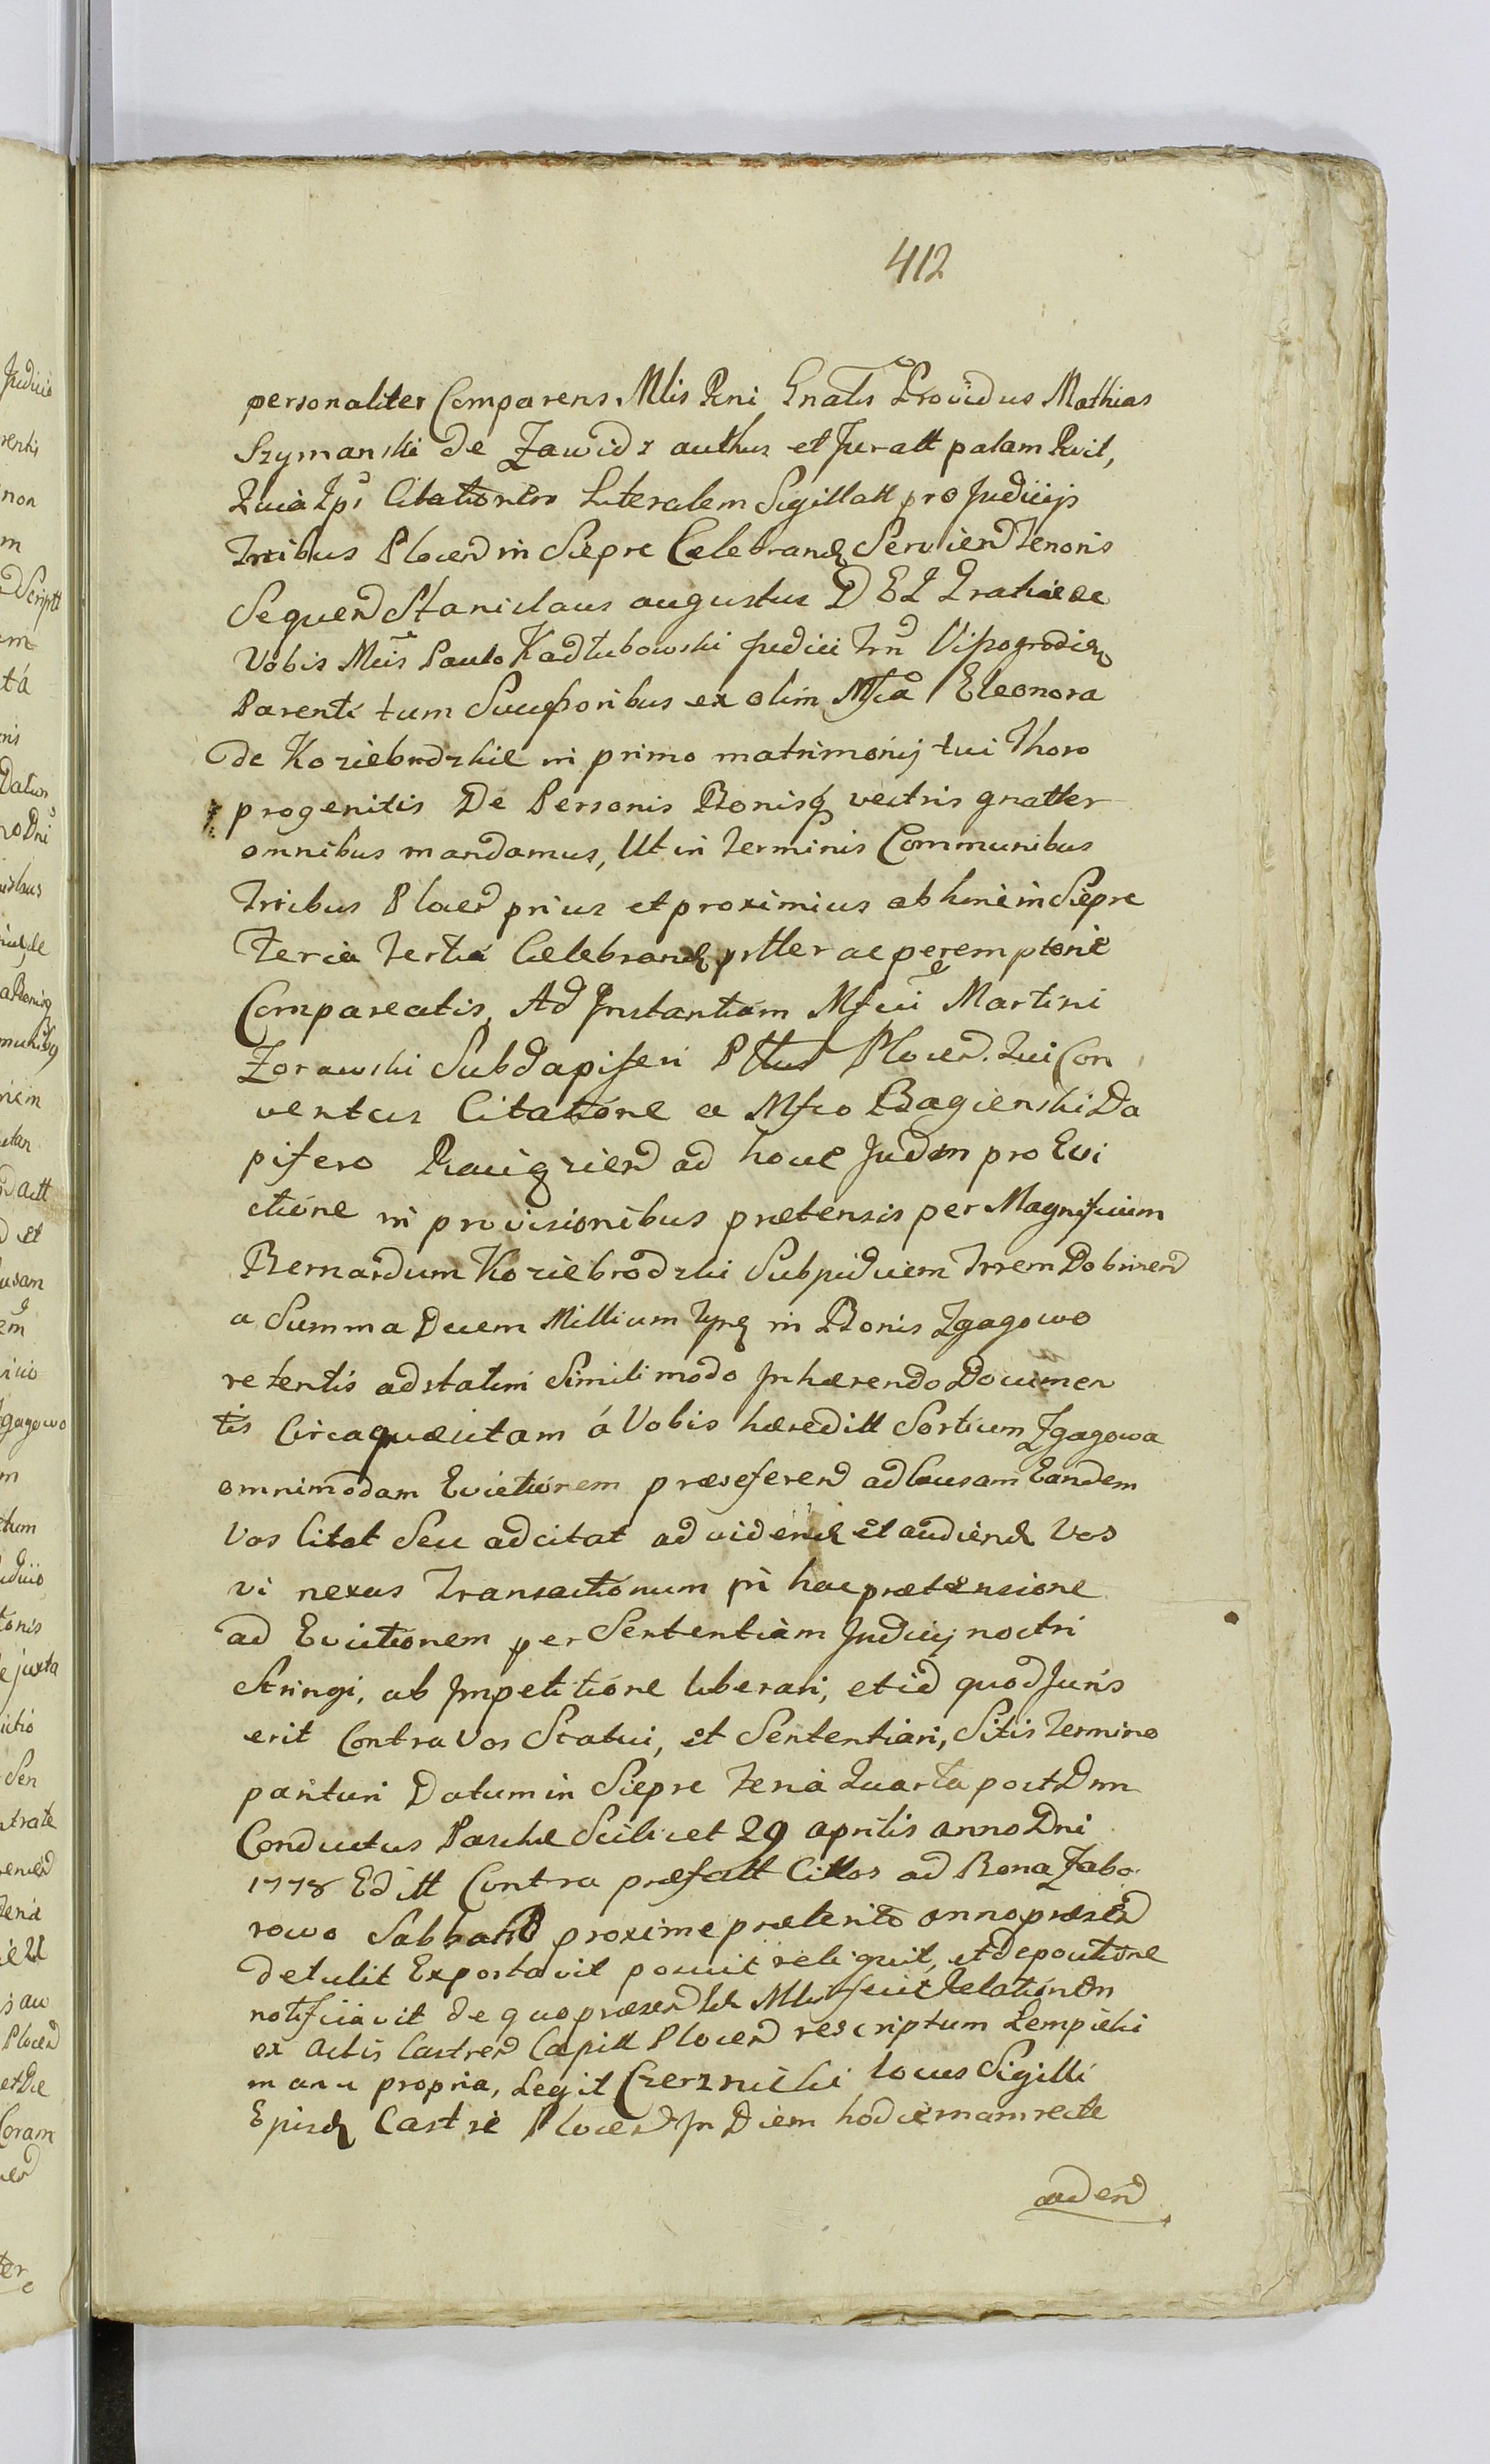 412
personaliter Comparens Mlis Rni Gnalis Providus Mathias
Szymanski de Zawidz authus et Juratt palam Rvit,
Quia Ips Citationem Literalem Sigillatt pro Judicijs
Trribus Plocen in Siepre Celebrand Servien Tenoris
Sequen Stanislaus augustus D E I Gratia ae
Vobis Mcis Paulo Kadłubowski Judici Trn Visogrodien
Parenti tum Successoribus ex olim Mfca Eleonora
de Koziebrodzkie in primo matrimonij tui Thoro
progenitis De Personis Bonisq vestris gnatter
omnibus mandamus, Ut in Terminis Communibus
Trribus Plocen prius et proximius ab hinc in Siepre
Feria Tertia Celebrand prtter ac peremptorie
Compareatis, Ad Instantiam Mfci Martini
Zorawski Subdapiferi Pttus Plocen. Qui Con
ventus Citatione a Mfco Bagienski Da
pifero Raciązien ad hocce Judm pro Evi
ctione in provisionibus prætensis per Magnificum
Bernardum Koziebrodzki Subjudicem Trrem Dobrinen
a Summa Decem Millium flnq in Bonis Zgagowo
retentis adstatim Simili modo Inhærendo Documen
tis Circa quæsitam á Vobis hæreditt Sortium Zgagowa
omnimodam Evictionem præseferen ad Causam Eandem
Vos Citat Seu adcitat ad vidend et audiend Vos
vi nexus Transactionum in hac prætensione
ad Evictionem per Sententiam Judicij nostri
Stringi, ab Impetitione liberari, et id quod Juris
erit Contra Vos Statui, et Sententiari, Sitis Termino
parituri Datum in Siepre Feria Quarta post Dnn
Conductus Paschæ Scilicet 29 aprilis anno Dni
1778 Editt Contra præfatt Cittos ad Bona Zabo
rowo Sabbatho proxime præterito anno præsen
detulit Exportavit posuit reliquit, et depositione
notificavit de quo præsen Mlis fecit Relationem
ex Actis Castren Capitt Plocen rescriptum Lempicki
manu propria, Legit Czerznicki locus Sigilli
Episd Castri Plocen In Diem hodiernam recte
aden